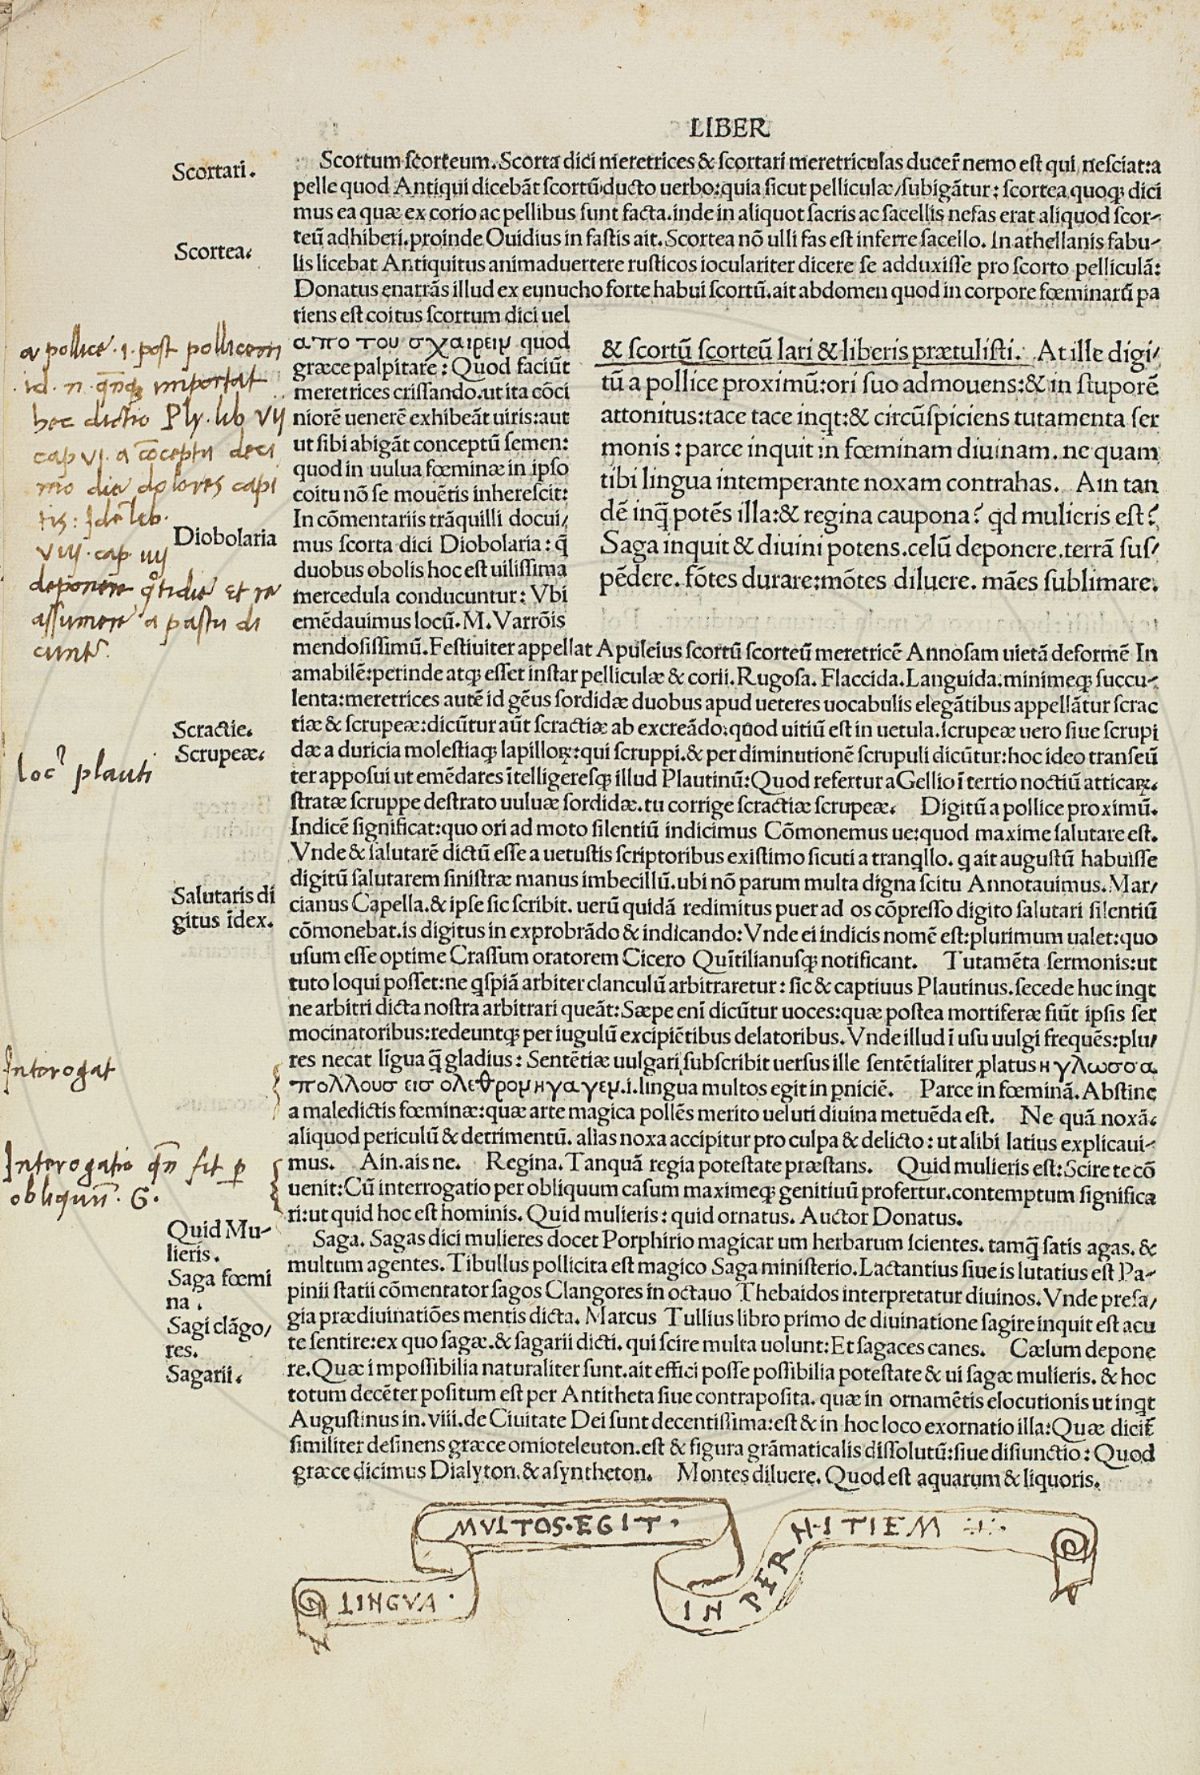 LIBER
Scortari.
Scortea.
Diobolaria
Scractie.
Scrupeæ.
Salutaris di
gitus īdex.
Quid Mu-
lieris.
Saga fœmi
na .
Sagi clãgo/
res.
Sagarii.
a pollice . 1 . post pollicem
id . n . importat
hec dictio Ply . lib VII
cap VI . a cōceptu deci
mo die dolores capi
tis :
VIIJ . cap IIIJ
deponere et re
assumere a pastu di
loc plauti
Interogat
Interogatio fit p
obliquū . G .
Scortum scorteum. Scorta dici meretrices & scortari meretriculas ducer̃ nemo est qui nesciat: a
pelle quod Antiqui dicebãt scortū ducto uerbo: quia sicut pelliculæ/subigãtur: scortea quoqꝫ dici
mus ea quæ ex corio ac pellibus sunt facta. inde in aliquot sacris ac sacellis nefas erat aliquod scor-
teū adhiberi. proinde Ouidius in fastis ait. Scortea nō ulli fas est inferre sacello. In athellanis fabu-
lis licebat Antiquitus animaduertere rusticos ioculariter dicere se adduxisse pro scorto pelliculã:
Donatus enarrãs illud ex eunucho forte habui scortū. ait abdomen quod in corpore fœminarū pa
tiens est coitus scortum dici uel
απο του σχαιρειν quod
græce palpitare: Quod faciūt
meretrices crissando. ut ita cōci
niorē uenerē exhibeãt uiris: aut
ut sibi abigãt conceptū semen:
quod in uulua fœminæ in ipso
coitu nō se mouētis inherescit:
In cōmentariis trãquilli docui/
mus scorta dici Diobolaria: q̃
duobus obolis hoc est uilissima
mercedula conducuntur: Vbi
emēdauimus locū. M. Varrōis
& scortū scorteū lari & liberis prætulisti. At ille digi/
tū a pollice proximū: ori suo admouens: & in stuporē
attonitus: tace tace inqt: & circūspiciens tutamenta ser
monis: parce inquit in fœminam diuinam. ne quam
tibi lingua intemperante noxam contrahas. Ain tan
dē inq̃ potēs illa: & regina caupona? qd mulieris est?
Saga inquit & diuini potens. celū deponere. terrã sus/
pēdere. fōtes durare: mōtes diluere. mães sublimare.
mendosissimū. Festiuiter appellat Apuleius scortū scorteū meretricē Annosam uietã deformē In
amabilē: perinde atqꝫ esset instar pelliculæ & corii. Rugosa. Flaccida. Languida: minimeqꝫ succu-
lenta: meretrices autē id gēus sordidæ duobus apud ueteres uocabulis elegãtibus appellãtur scrac
tiæ & scrupeæ: dicūtur aūt scractiæ ab excreãdo: quod uitiū est in uetula. scrupeæ uero siue scrupi
dæ a duricia molestiaqꝫ lapilloꝝ: qui scruppi. & per diminutionē scrupuli dicūtur: hoc ideo transeū
ter apposui ut emēdares ītelligeresqꝫ illud Plautinū: Quod refertur a Gellio ī tertio noctiū atticaꝝ.
stratæ scruppe destrato uuluæ sordidæ. tu corrige scractiæ scrupeæ. Digitū a pollice proximū.
Indicē significat: quo ori ad moto silentiū indicimus Cōmonemus ue: quod maxime salutare est.
Vnde & salutarē dictū esse a uetustis scriptoribus existimo sicuti a tranqllo. q ait augustū habuisse
digitū salutarem sinistræ manus imbecillū. ubi nō parum multa digna scitu Annotauimus. Mar/
cianus Capella. & ipse sic scribit. uerū quidã redimitus puer ad os cōpresso digito salutari silentiū
cōmonebat. is digitus in exprobrãdo & indicando: Vnde ei indicis nomē est: plurimum ualet: quo
usum esse optime Crassum oratorem Cicero Quītilianusqꝫ notificant. Tutamēta sermonis: ut
tuto loqui posset: ne qspiã arbiter clanculū arbitraretur: sic & captiuus Plautinus. secede huc inqt
ne arbitri dicta nostra arbitrari queãt: Sæpe eni dicūtur uoces: quæ postea mortiferæ fiūt ipsis ser
mocinatoribus: redeuntqꝫ per iugulū excipiētibus delatoribus. Vnde illud ī usu uulgi frequēs: plu/
res necat līgua q̃ gladius: Sentētiæ uulgari subscribit uersus ille sentētialiter platus η γλωσσα
πολλουσ εισ ολεθρον ηγαγεν. i. lingua multos egit in pniciē. Parce in fœminã. Abstine
a maledictis fœminæ: quæ arte magica pollēs merito ueluti diuina metuēda est. Ne quã noxã.
aliquod periculū & detrimentū. alias noxa accipitur pro culpa & delicto: ut alibi latius explicaui-
mus. Ain. ais ne. Regina. Tanquã regia potestate præstans. Quid mulieris est: Scire te cō
uenit: Cū interrogatio per obliquum casum maximeqꝫ genitiuū profertur. contemptum significa
ri: ut quid hoc est hominis. Quid mulieris: quid ornatus. Auctor Donatus.
Saga. Sagas dici mulieres docet Porphirio magicar um herbarum scientes. tamq̃ satis agas. &
multum agentes. Tibullus pollicita est magico Saga ministerio. Lactantius siue is lutatius est Pa-
pinii statii cōmentator sagos Clangores in octauo Thebaidos interpretatur diuinos. Vnde presa/
gia prædiuinatiōes mentis dicta. Marcus Tullius libro primo de diuinatione sagire inquit est acu
te sentire: ex quo sagæ. & sagarii dicti. qui scire multa uolunt: Et sagaces canes. Cælum depone
re. Quæ impossibilia naturaliter sunt. ait effici posse possibilia potestate & ui sagæ mulieris. & hoc
totum decēter positum est per Antitheta siue contraposita. quæ in ornamētis elocutionis ut inqt
Augustinus in. viii. de Ciuitate Dei sunt decentissima: est & in hoc loco exornatio illa: Quæ dicit̃
similiter desinens græce omioteleuton. est & figura grãmaticalis dissolutū: siue disiunctio: Quod
græce dicimus Dialyton. & asyntheton. Montes diluere. Quod est aquarum & liquoris.
LINGVA .
MVLTOS . EGIT .
IN PERNITIEM